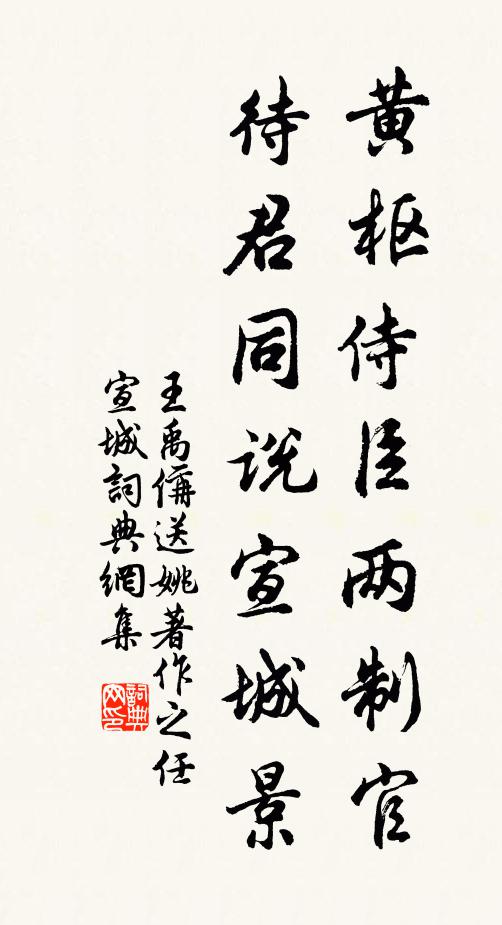 黄枢侍臣两制官
待君同説宣城景
王禹偁送姚著作之任
宣城詞典網集
詞典网印